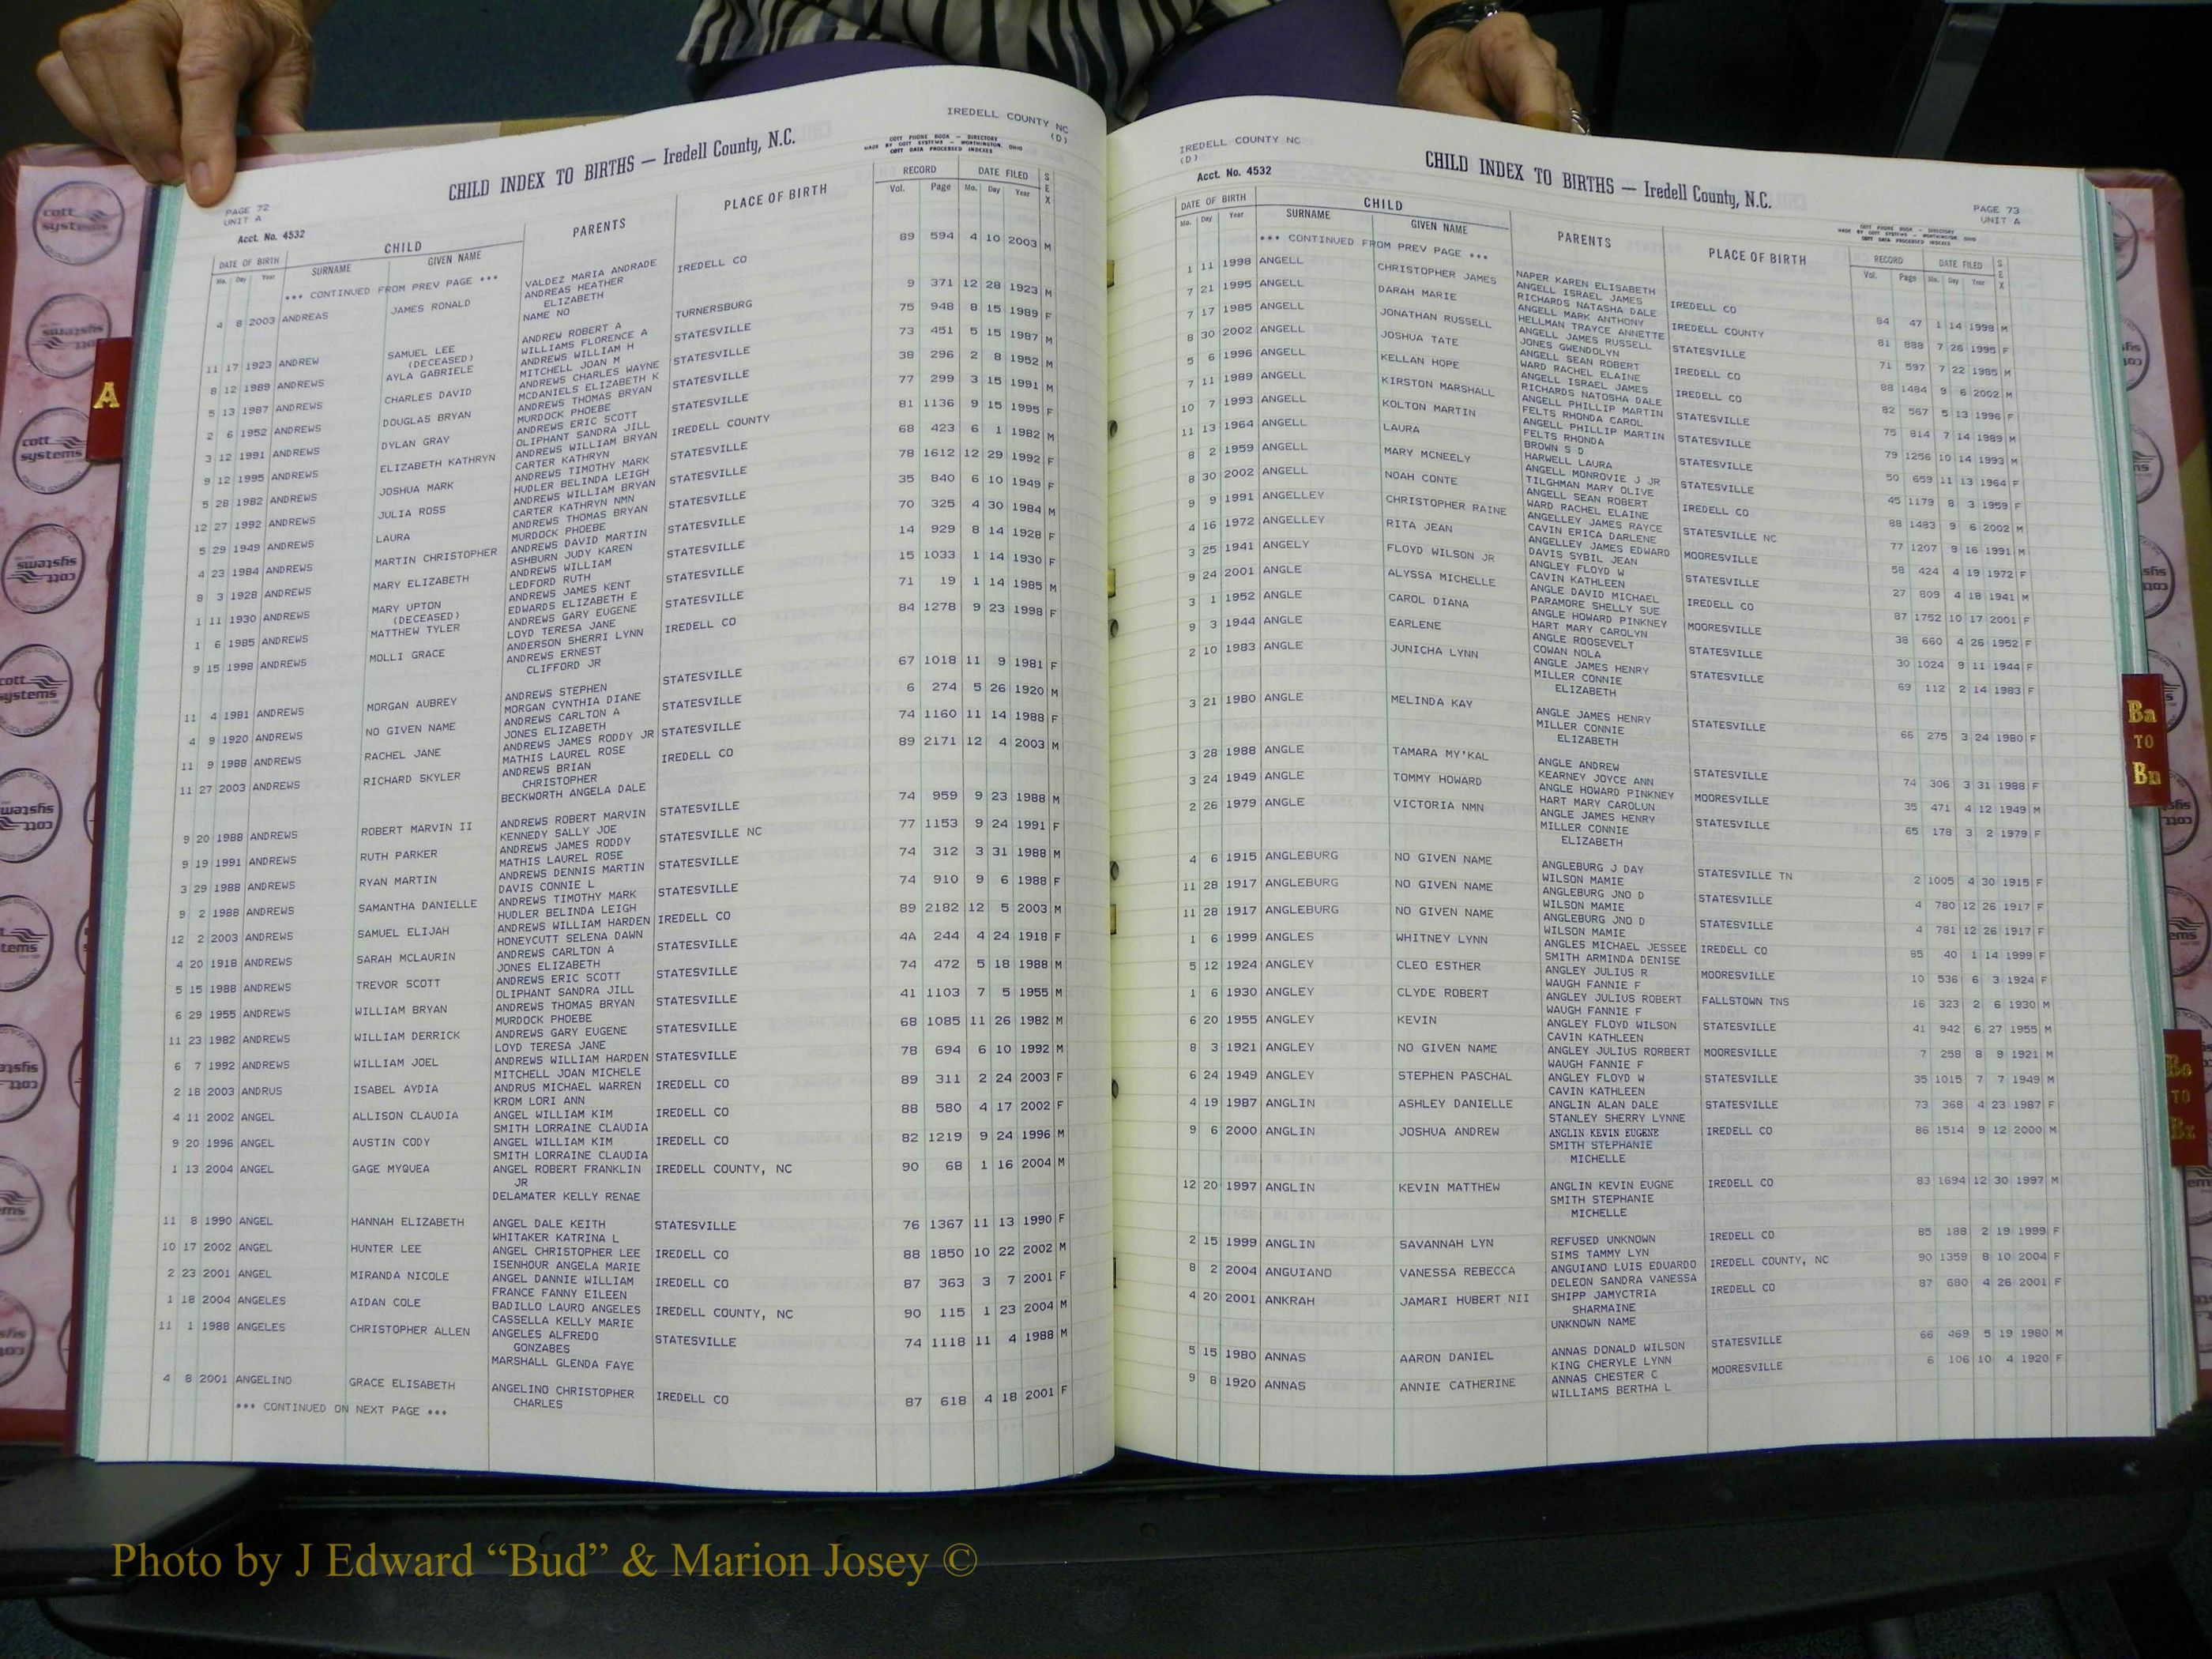 IREDELL COUNTY NC
(D)
CHILD INDEX TO BIRTHS — Iredell County, N.C.
COTT PHONE BOOK — DIRECTORY
MADE BY COTT SYSTEMS — WORTHINGTON, OHIO
COTT DATA PROCESSED INDEXES
PAGE 72
UNIT A
Acct. No. 4532
DATE OF BIRTH CHILD PARENTS PLACE OF BIRTH RECORD DATE FILED SEX
Mo. Day Year SURNAME GIVEN NAME Vol. Page Mo. Day Year
*** CONTINUED FROM PREV PAGE ***
VALDEZ MARIA ANDRADE
4 8 2003 ANDREAS JAMES RONALD ANDREAS HEATHER IREDELL CO 89 594 4 10 2003 M
ELIZABETH
NAME NO
11 17 1923 ANDREW SAMUEL LEE ANDREW ROBERT A TURNERSBURG 9 371 12 28 1923 M
(DECEASED) WILLIAMS FLORENCE A
8 12 1989 ANDREWS AYLA GABRIELE ANDREWS WILLIAM H STATESVILLE 75 948 8 15 1989 F
MITCHELL JOAN M
5 13 1987 ANDREWS CHARLES DAVID ANDREWS CHARLES WAYNE STATESVILLE 73 451 5 15 1987 M
MCDANIELS ELIZABETH K
2 6 1952 ANDREWS DOUGLAS BRYAN ANDREWS THOMAS BRYAN STATESVILLE 38 296 2 8 1952 M
MURDOCK PHOEBE
3 12 1991 ANDREWS DYLAN GRAY ANDREWS ERIC SCOTT STATESVILLE 77 299 3 15 1991 M
OLIPHANT SANDRA JILL
9 12 1995 ANDREWS ELIZABETH KATHRYN ANDREWS WILLIAM BRYAN IREDELL COUNTY 81 1136 9 15 1995 F
CARTER KATHRYN
5 28 1982 ANDREWS JOSHUA MARK ANDREWS TIMOTHY MARK STATESVILLE 68 423 6 1 1982 M
HUDLER BELINDA LEIGH
12 27 1992 ANDREWS JULIA ROSS ANDREWS WILLIAM BRYAN STATESVILLE 78 1612 12 29 1992 F
CARTER KATHRYN NMN
5 29 1949 ANDREWS LAURA ANDREWS THOMAS BRYAN STATESVILLE 35 840 6 10 1949 F
MURDOCK PHOEBE
4 23 1984 ANDREWS MARTIN CHRISTOPHER ANDREWS DAVID MARTIN STATESVILLE 70 325 4 30 1984 M
ASHBURN JUDY KAREN
8 3 1928 ANDREWS MARY ELIZABETH ANDREWS WILLIAM STATESVILLE 14 929 8 14 1928 F
LEDFORD RUTH
1 11 1930 ANDREWS MARY UPTON ANDREWS JAMES KENT STATESVILLE 15 1033 1 14 1930 F
(DECEASED) EDWARDS ELIZABETH E
1 6 1985 ANDREWS MATTHEW TYLER ANDREWS GARY EUGENE STATESVILLE 71 19 1 14 1985 M
LOYD TERESA JANE
9 15 1998 ANDREWS MOLLI GRACE ANDERSON SHERRI LYNN IREDELL CO 84 1278 9 23 1998 F
ANDREWS ERNEST
CLIFFORD JR
11 4 1981 ANDREWS MORGAN AUBREY ANDREWS STEPHEN STATESVILLE 67 1018 11 9 1981 F
MORGAN CYNTHIA DIANE
4 9 1920 ANDREWS NO GIVEN NAME ANDREWS CARLTON A STATESVILLE 6 274 5 26 1920 M
JONES ELIZABETH
11 9 1988 ANDREWS RACHEL JANE ANDREWS JAMES RODDY JR STATESVILLE 74 1160 11 14 1988 F
MATHIS LAUREL ROSE
11 27 2003 ANDREWS RICHARD SKYLER ANDREWS BRIAN IREDELL CO 89 2171 12 4 2003 M
CHRISTOPHER
BECKWORTH ANGELA DALE
9 20 1988 ANDREWS ROBERT MARVIN II ANDREWS ROBERT MARVIN STATESVILLE 74 959 9 23 1988 M
KENNEDY SALLY JOE
9 19 1991 ANDREWS RUTH PARKER ANDREWS JAMES RODDY STATESVILLE NC 77 1153 9 24 1991 F
MATHIS LAUREL ROSE
3 29 1988 ANDREWS RYAN MARTIN ANDREWS DENNIS MARTIN STATESVILLE 74 312 3 31 1988 M
DAVIS CONNIE L
9 2 1988 ANDREWS SAMANTHA DANIELLE ANDREWS TIMOTHY MARK STATESVILLE 74 910 9 6 1988 F
HUDLER BELINDA LEIGH
12 2 2003 ANDREWS SAMUEL ELIJAH ANDREWS WILLIAM HARDEN IREDELL CO 89 2182 12 5 2003 M
HONEYCUTT SELENA DAWN
4 20 1918 ANDREWS SARAH MCLAURIN ANDREWS CARLTON A STATESVILLE 4A 244 4 24 1918 F
JONES ELIZABETH
5 15 1988 ANDREWS TREVOR SCOTT ANDREWS ERIC SCOTT STATESVILLE 74 472 5 18 1988 M
OLIPHANT SANDRA JILL
6 29 1955 ANDREWS WILLIAM BRYAN ANDREWS THOMAS BRYAN STATESVILLE 41 1103 7 5 1955 M
MURDOCK PHOEBE
11 23 1982 ANDREWS WILLIAM DERRICK ANDREWS GARY EUGENE STATESVILLE 68 1085 11 26 1982 M
LOYD TERESA JANE
6 7 1992 ANDREWS WILLIAM JOEL ANDREWS WILLIAM HARDEN STATESVILLE 78 694 6 10 1992 M
MITCHELL JOAN MICHELE
2 18 2003 ANDRUS ISABEL AYDIA ANDRUS MICHAEL WARREN IREDELL CO 89 311 2 24 2003 F
KROM LORI ANN
4 11 2002 ANGEL ALLISON CLAUDIA ANGEL WILLIAM KIM IREDELL CO 88 580 4 17 2002 F
SMITH LORRAINE CLAUDIA
9 20 1996 ANGEL AUSTIN CODY ANGEL WILLIAM KIM IREDELL CO 82 1219 9 24 1996 M
SMITH LORRAINE CLAUDIA
1 13 2004 ANGEL GAGE MYQUEA ANGEL ROBERT FRANKLIN IREDELL COUNTY, NC 90 68 1 16 2004 M
JR
DELAMATER KELLY RENAE
11 8 1990 ANGEL HANNAH ELIZABETH ANGEL DALE KEITH STATESVILLE 76 1367 11 13 1990 F
WHITAKER KATRINA L
10 17 2002 ANGEL HUNTER LEE ANGEL CHRISTOPHER LEE IREDELL CO 88 1850 10 22 2002 M
ISENHOUR ANGELA MARIE
2 23 2001 ANGEL MIRANDA NICOLE ANGEL DANNIE WILLIAM IREDELL CO 87 363 3 7 2001 F
FRANCE FANNY EILEEN
1 18 2004 ANGELES AIDAN COLE BADILLO LAURO ANGELES IREDELL COUNTY, NC 90 115 1 23 2004 M
CASSELLA KELLY MARIE
11 1 1988 ANGELES CHRISTOPHER ALLEN ANGELES ALFREDO STATESVILLE 74 1118 11 4 1988 M
GONZABES
MARSHALL GLENDA FAYE
4 8 2001 ANGELINO GRACE ELISABETH ANGELINO CHRISTOPHER IREDELL CO 87 618 4 18 2001 F
CHARLES
*** CONTINUED ON NEXT PAGE ***
IREDELL COUNTY NC
(D)
Acct. No. 4532
CHILD INDEX TO BIRTHS — Iredell County, N.C.
PAGE 73
UNIT A
COTT PHONE BOOK — DIRECTORY
MADE BY COTT SYSTEMS — WORTHINGTON, OHIO
COTT DATA PROCESSED INDEXES
DATE OF BIRTH CHILD PARENTS PLACE OF BIRTH RECORD DATE FILED SEX
Mo. Day Year SURNAME GIVEN NAME Vol. Page Mo. Day Year
*** CONTINUED FROM PREV PAGE ***
NAPER KAREN ELISABETH
1 11 1998 ANGELL CHRISTOPHER JAMES ANGELL ISRAEL JAMES IREDELL CO 84 47 1 14 1998 M
RICHARDS NATASHA DALE
7 21 1995 ANGELL DARAH MARIE ANGELL MARK ANTHONY IREDELL COUNTY 81 888 7 26 1995 F
HELLMAN TRAYCE ANNETTE
7 17 1985 ANGELL JONATHAN RUSSELL ANGELL JAMES RUSSELL STATESVILLE 71 597 7 22 1985 M
JONES GWENDOLYN
8 30 2002 ANGELL JOSHUA TATE ANGELL SEAN ROBERT IREDELL CO 88 1484 9 6 2002 M
WARD RACHEL ELAINE
5 6 1996 ANGELL KELLAN HOPE ANGELL ISRAEL JAMES IREDELL CO 82 567 5 13 1996 F
RICHARDS NATOSHA DALE
7 11 1989 ANGELL KIRSTON MARSHALL ANGELL PHILLIP MARTIN STATESVILLE 75 814 7 14 1989 M
FELTS RHONDA CAROL
10 7 1993 ANGELL KOLTON MARTIN ANGELL PHILLIP MARTIN STATESVILLE 79 1256 10 14 1993 M
FELTS RHONDA
11 13 1964 ANGELL LAURA BROWN S D STATESVILLE 50 659 11 13 1964 F
HARWELL LAURA
8 2 1959 ANGELL MARY MCNEELY ANGELL MONROVIE J JR STATESVILLE 45 1179 8 3 1959 F
TILGHMAN MARY OLIVE
8 30 2002 ANGELL NOAH CONTE ANGELL SEAN ROBERT IREDELL CO 88 1483 9 6 2002 M
WARD RACHEL ELAINE
9 9 1991 ANGELLEY CHRISTOPHER RAINE ANGELLEY JAMES RAYCE STATESVILLE NC 77 1207 9 16 1991 M
CAVIN ERICA DARLENE
4 16 1972 ANGELLEY RITA JEAN ANGELLEY JAMES EDWARD MOORESVILLE 58 424 4 19 1972 F
DAVIS SYBIL JEAN
3 25 1941 ANGELY FLOYD WILSON JR ANGLEY FLOYD W STATESVILLE 27 809 4 18 1941 M
CAVIN KATHLEEN
9 24 2001 ANGLE ALYSSA MICHELLE ANGLE DAVID MICHAEL IREDELL CO 87 1752 10 17 2001 F
PARAMORE SHELLY SUE
3 1 1952 ANGLE CAROL DIANA ANGLE HOWARD PINKNEY MOORESVILLE 38 660 4 26 1952 F
HART MARY CAROLYN
9 3 1944 ANGLE EARLENE ANGLE ROOSEVELT STATESVILLE 30 1024 9 11 1944 F
COWAN NOLA
2 10 1983 ANGLE JUNICHA LYNN ANGLE JAMES HENRY STATESVILLE 69 112 2 14 1983 F
MILLER CONNIE
ELIZABETH
3 21 1980 ANGLE MELINDA KAY ANGLE JAMES HENRY STATESVILLE 66 275 3 24 1980 F
MILLER CONNIE
ELIZABETH
3 28 1988 ANGLE TAMARA MY'KAL ANGLE ANDREW STATESVILLE 74 306 3 31 1988 F
KEARNEY JOYCE ANN
3 24 1949 ANGLE TOMMY HOWARD ANGLE HOWARD PINKNEY MOORESVILLE 35 471 4 12 1949 M
HART MARY CAROLUN
2 26 1979 ANGLE VICTORIA NMN ANGLE JAMES HENRY STATESVILLE 65 178 3 2 1979 F
MILLER CONNIE
ELIZABETH
4 6 1915 ANGLEBURG NO GIVEN NAME ANGLEBURG J DAY STATESVILLE TN 2 1005 4 30 1915 F
WILSON MAMIE
11 28 1917 ANGLEBURG NO GIVEN NAME ANGLEBURG JNO D STATESVILLE 4 780 12 26 1917 F
WILSON MAMIE
11 28 1917 ANGLEBURG NO GIVEN NAME ANGLEBURG JNO D STATESVILLE 4 781 12 26 1917 F
WILSON MAMIE
1 6 1999 ANGLES WHITNEY LYNN ANGLES MICHAEL JESSEE IREDELL CO 85 40 1 14 1999 F
SMITH ARMINDA DENISE
5 12 1924 ANGLEY CLEO ESTHER ANGLEY JULIUS R MOORESVILLE 10 536 6 3 1924 F
WAUGH FANNIE F
1 6 1930 ANGLEY CLYDE ROBERT ANGLEY JULIUS ROBERT FALLSTOWN TNS 16 323 2 6 1930 M
WAUGH FANNIE F
6 20 1955 ANGLEY KEVIN ANGLEY FLOYD WILSON STATESVILLE 41 942 6 27 1955 M
CAVIN KATHLEEN
8 3 1921 ANGLEY NO GIVEN NAME ANGLEY JULIUS RORBERT MOORESVILLE 7 258 8 9 1921 M
WAUGH FANNIE F
6 24 1949 ANGLEY STEPHEN PASCHAL ANGLEY FLOYD W STATESVILLE 35 1015 7 7 1949 M
CAVIN KATHLEEN
4 19 1987 ANGLIN ASHLEY DANIELLE ANGLIN ALAN DALE STATESVILLE 73 368 4 23 1987 F
STANLEY SHERRY LYNNE
9 6 2000 ANGLIN JOSHUA ANDREW ANGLIN KEVIN EUGENE IREDELL CO 86 1514 9 12 2000 M
SMITH STEPHANIE
MICHELLE
12 20 1997 ANGLIN KEVIN MATTHEW ANGLIN KEVIN EUGNE IREDELL CO 83 1694 12 30 1997 M
SMITH STEPHANIE
MICHELLE
2 15 1999 ANGLIN SAVANNAH LYN REFUSED UNKNOWN IREDELL CO 85 188 2 19 1999 F
SIMS TAMMY LYN
8 2 2004 ANGUIANO VANESSA REBECCA ANGUIANO LUIS EDUARDO IREDELL COUNTY, NC 90 1359 8 10 2004 F
DELEON SANDRA VANESSA
4 20 2001 ANKRAH JAMARI HUBERT NII SHIPP JAMYCTRIA IREDELL CO 87 680 4 26 2001 F
SHARMAINE
UNKNOWN NAME
5 15 1980 ANNAS AARON DANIEL ANNAS DONALD WILSON STATESVILLE 66 469 5 19 1980 M
KING CHERYLE LYNN
9 8 1920 ANNAS ANNIE CATHERINE ANNAS CHESTER C MOORESVILLE 6 106 10 4 1920 F
WILLIAMS BERTHA L
A
Ba
TO
Bn
Bo
TO
Bz
cott
systems
Photo by J Edward “Bud” & Marion Josey ©